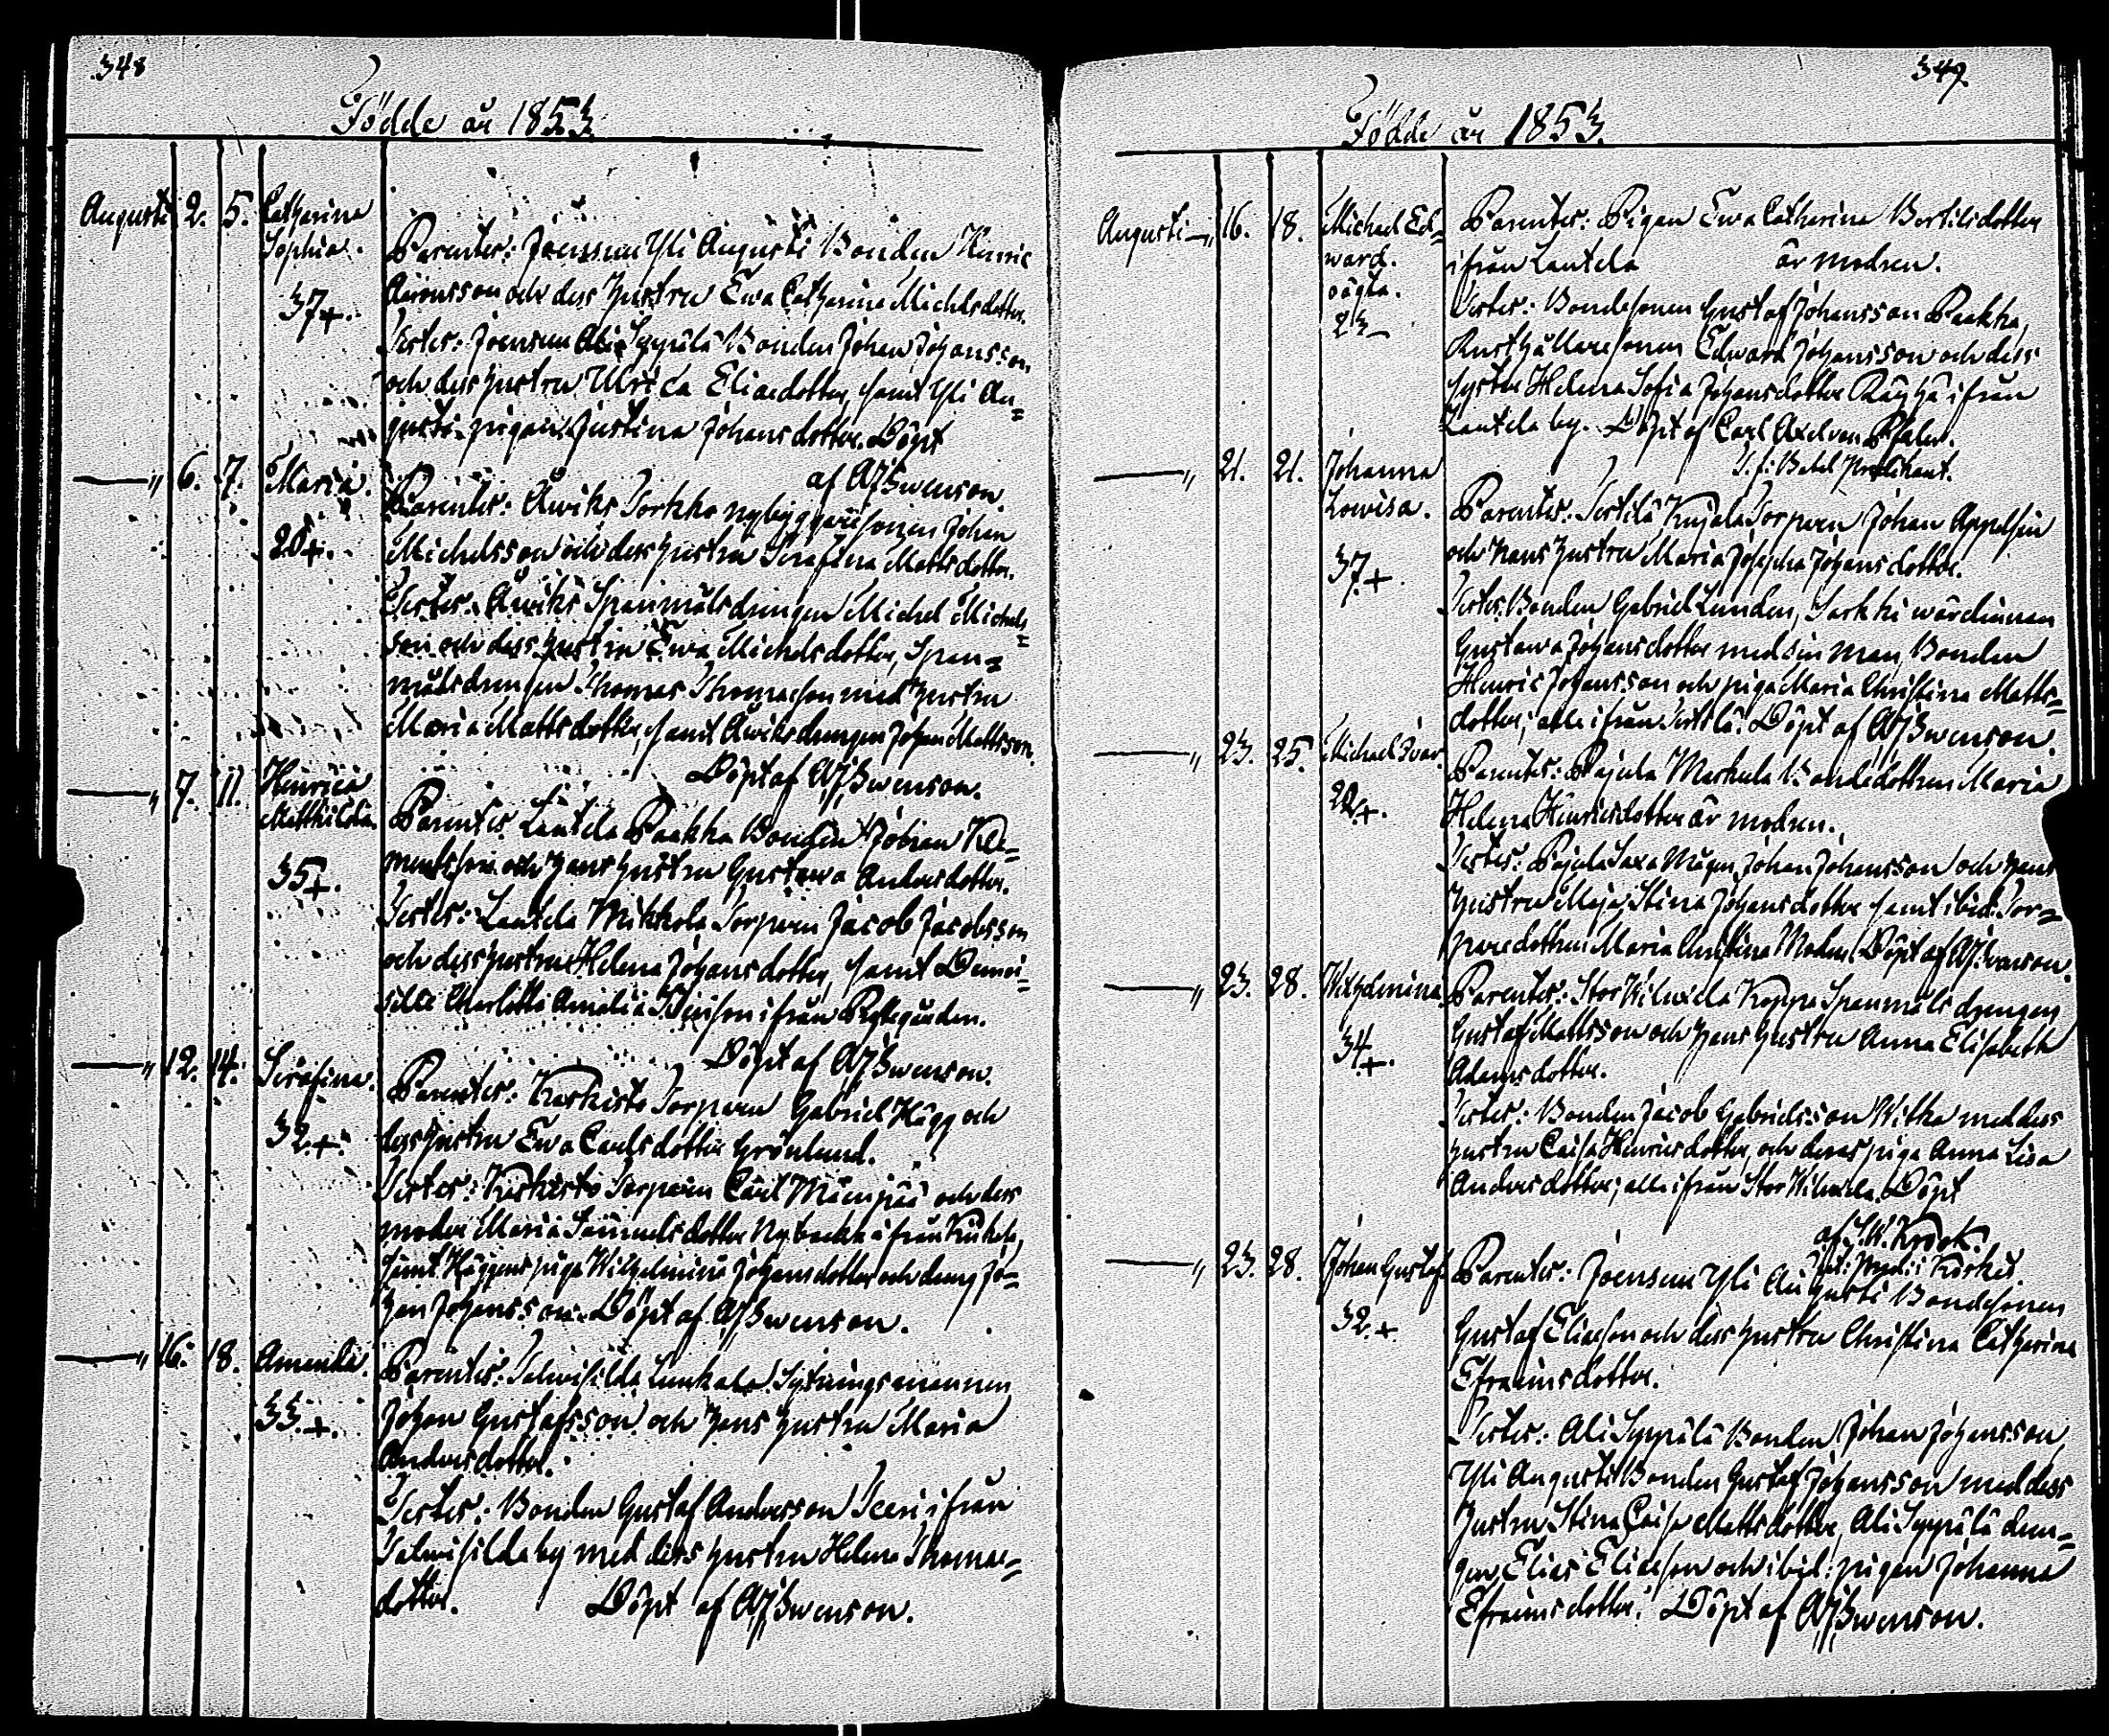 348
Födde år 1853.
Augusti 2. 5. Catharina
Sophia.
37+.
Parenter: Joensuu Yli Augusti Bonden Henric
Aaronsson och dess hustru Ewa Catharina Michelsdotter.
Tester: Joensuu Ali Seppälä Bonden Johan Johansson
och dess hustru Ulrica Eliaedotter, samt Yli Au=
gusti pigan Justina Johansdotter. Döpt
af AJSwenson.
—„ 6. 7. Maria.
20+.
Parenter: Äwiks Torkko nybyggaresonen Johan
Michelsson och dess hustru Serafina Mattsdotter.
Tester: Äwiks Spanmålsdrengen Michel Michels=
son och dess hustru Ewa Michelsdotter, Span=
målsdrengen Thomas Thomasson med hustru
Maria Mattsdotter, samt Äwiks drengen Johan Mattsson.
Döpt af AJSwenson.
—„ 7. 11. Henrica
Mathilda.
35+.
Parenter: Lautela Paakka Bonden Johan Kle=
mentsson och hans hustru Gustawa Andersdotter.
Tester: Lautela Mikkola Torparen Jacob Jacobsson
och dess hustru Helena Johansdotter, samt Demoi=
selle Charlotta Amalia ifrån
Döpt af AJSwenson.
—„ 12. 14. Serafina.
32+.
Parenter: Karkisto Torparen Gabriel Hägg och
dess hustru Ewa Carlsdotter Grönlund.
Tester: Karkisto Torparen Carl Männpää och dess
moder Maria Samuelsdotter Nybacka ifrån
samt Häggens piga Wilhelmina Johansdotter och dreng Jo=
han Johansson. Döpt af AJSwenson.
—„ 16. 18. Amanda.
33+.
Parenter: Salwisilda Lunkala Sytningsmannen
Johan Gustafsson och hans hustru Maria
Andersdotter.
Tester: Bonden Gustaf Andersson Seeri ifrån
Salwisilda by med dess hustru Helena Thomae=
dotter. Döpt af AJSwenson.
349.
Födde år 1853.
Augusti—„ 16. 18. Michael Ed=
ward.
oägta.
23—
Parenter: Pigan Ewa Catharina Bertilsdotter
ifrån Lautela är modren.
Tester: Bondesonen Gustaf Johansson Paakka,
Rusthållaresonen Edward Johansson och dess
syster Helena Sofia Johansdotter Räyhä ifrån
Lautela by. Döpt af Carl Axel von Pfaler.
—„ 21. 21. Johanna
Lowisa.
37+.
Parenter: Sertilä Kujala Torparen Johan Appelsin
och hans hustru Maria Josepha Johansdotter.
Tester: Bonden Gabriel Lunden, Sarkki wärdinnan
Gustawa Johansdotter med sin man, Bonden
Henric Johansson och piga Maria Christina Matts=
dotter; alla ifrån Sertilä. Döpt af AJSwenson.
—„ 23. 25. Michael Iwar.
22+.
Parenter: Pajula Markula Bondedottren Maria
Helena Henricsdotter är modren.
Tester: Pajula Saxa Mågen Johan Johansson och hans
hustru Maja Stina Johansdotter samt ibid: Tor=
paredottren Maria Christina Döpt af AJSwenson.
—„ 23. 28. Wilhelmina.
34+.
Parenter: Stor Wilmila Koppa Spanmålsdrengen
Gustaf Mattsson och hans hustru Anna Elisabeth
Adamsdotter.
Tester: Bonden Jacob Gabrielsson Witka med dess
hustru Caisa Henricsdotter, och deras piga Anna Lisa
Andersdotter; alla ifrån Stor Wilmila. Döpt
af S.W. Krook.
—„ 23. 28. Johan Gustaf.
32.+
Parenter: Joensuu Yli Augusti Bondesonen
Gustaf Eliaeson och dess hustru Christina Catharina
Efraimsdotter.
Tester: Ali Seppälä Bonden Johan Johansson,
Yli Augusti Bonden Gustaf Johansson med dess
hustru Stina Caisa Mattsdotter, Ali Seppälä dren=
gen Elias Eliaeson och ibid: pigan Johanna
Efraimsdotter. Döpt af AJSwenson.